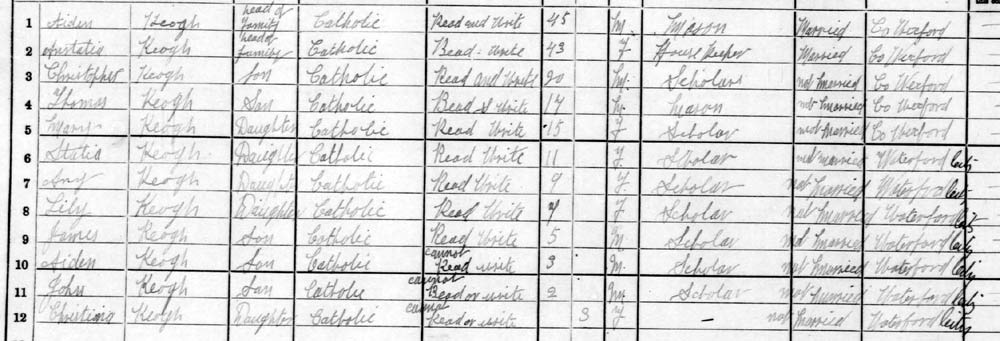 1 Aiden Keogh Head of Family Catholic Read and Write 45 M. Mason Married Co Wexford
2 Anstatia Keogh head of family Catholic Read Write 43 F House Keeper Married Co Wexford
3 Christopher Keogh Son Catholic Read and Write 20 M. Scholar not married Co Wexford
4 Thomas Keogh Son Catholic Read & Write 17 M. Mason not married Co Wexford
5 Mary Keogh Daughter Catholic Read Write 15 F Scholar not married Co Wexford
6 Statia Keogh Daughter Catholic Read Write 11 F. Scholar not married Waterford City
7 Keogh Daughter Catholic Read Write 9 F. Scholar not married Waterford City
8 Lily Keogh Daughter Catholic Read Write 7 F Scholar not married Waterford City
9 James Keogh Son Catholic Read Write 5 M Scholar not married Waterford City
10 Aiden Keogh Son Catholic cannot Read write 3 M. Scholar not married Waterford City
11 John Keogh Son Catholic cannot Read or write 2 M. Scholar not married Waterford City
12 Christina Keogh Daughter Catholic cannot Read or write 3 F — not Married Waterford City